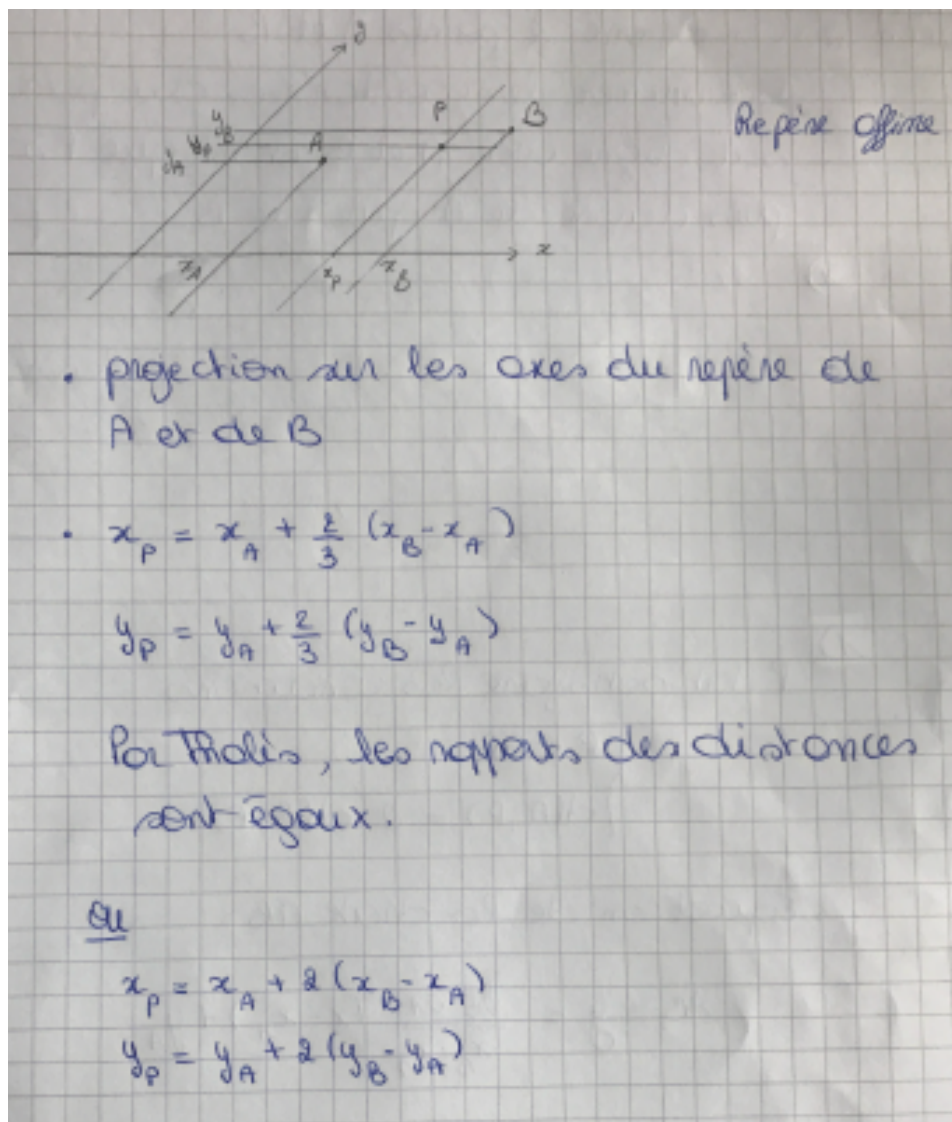 y
y_B
P
B
Repère affine
y_P
A
y_A
x_A
x_P
x_B
x
• projection sur les axes du repère de
A et de B
• x_P = x_A + 2/3 (x_B - x_A)
y_P = y_A + 2/3 (y_B - y_A)
Par Thalès, les rapports des distances
sont égaux.
ou
x_P = x_A + 2 (x_B - x_A)
y_P = y_A + 2 (y_B - y_A)